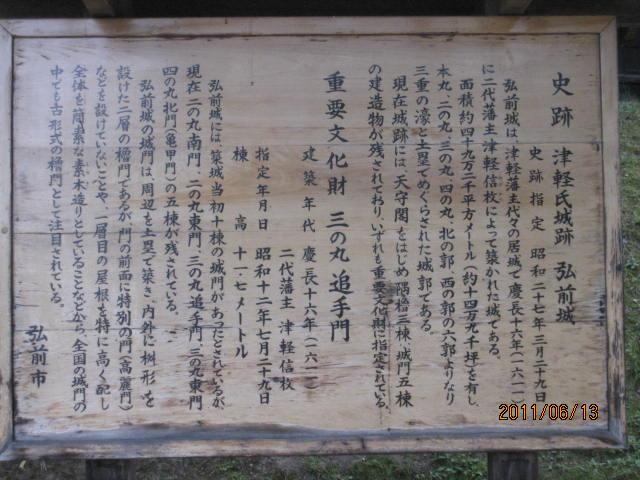 史跡 津軽氏城跡 弘前城
史跡指定 昭和二十七年三月二十九日
弘前城は、津軽藩主代々の居城で慶長十六年(一六一一)
に二代藩主津軽信枚によって築かれた城である。
面積約四十九万二千平方メートル(約十四万九千坪)を有し
本丸、二の丸、三の丸、四の丸、北の郭、西の郭の六郭よりなり
三重の濠と土塁でめぐらされた城郭である。
現在城跡には、天守閣をはじめ隅櫓三棟、城門五棟
の建造物が残されており、いずれも重要文化財に指定されている。
重要文化財 三の丸 追手門
建築年代 慶長十六年(一六一一)
二代藩主 津軽信枚
指定年月日 昭和十二年七月二十九日
棟高 十一・七メートル
弘前城には、築城当初十棟の城門があったとされているが
現在二の丸南門、二の丸東門、三の丸追手門、三の丸東門
四の丸北門(亀甲門)の五棟が残されている。
弘前城の城門は、周辺を土塁で築き、内外に桝形を
設けた二層の櫓門であるが、門の前面に特別の門(高麗門)
などを設けていないことや、一層目の屋根を特に高く配し
全体を簡素な素木造りとしていることなどから、全国の城門の
中でも古形式の櫓門として注目されている。
弘前市
2011/06/13